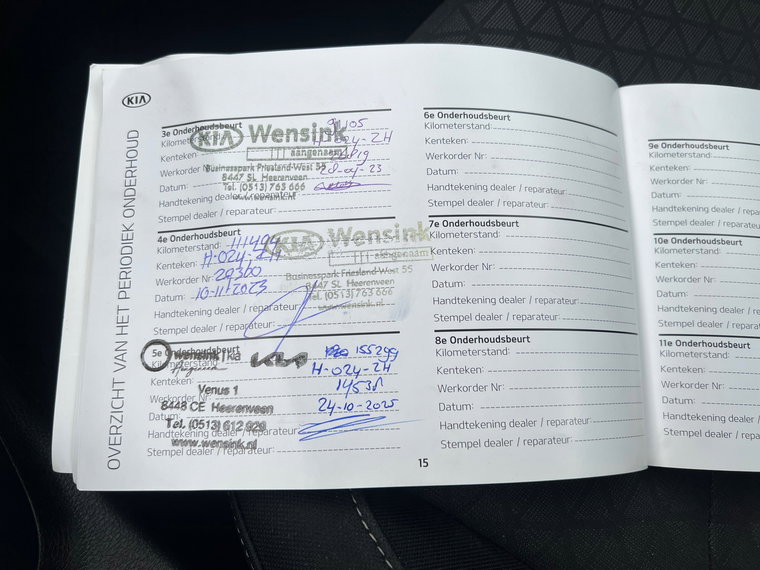 KIA
OVERZICHT VAN HET PERIODIEK ONDERHOUD
3e Onderhoudsbeurt
Kilometerstand: 91105
Kenteken: H-024-ZH
Werkorder Nr:
Datum: 28-04-23
Handtekening dealer / reparateur:
Stempel dealer / reparateur:
KIA Wensink
aangenaam
Businesspark Friesland-West 55
8447 SL Heerenveen
Tel. (0513) 763 666
www.wensink.nl
4e Onderhoudsbeurt
Kilometerstand: 111494
Kenteken: H-024-ZH
Werkorder Nr: 29360
Datum: 10-11-2023
Handtekening dealer / reparateur:
Stempel dealer / reparateur:
KIA Wensink
aangenaam
Businesspark Friesland-West 55
8447 SL Heerenveen
Tel. (0513) 763 666
www.wensink.nl
5e Onderhoudsbeurt
Kilometerstand: 155299
Kenteken: H-024-ZH
Werkorder Nr:
Datum: 24-10-2025
Handtekening dealer / reparateur:
Stempel dealer / reparateur:
wensink | Kia KIA
Venus 1
8448 CE Heerenveen
Tel. (0513) 612 020
www.wensink.nl
6e Onderhoudsbeurt
Kilometerstand:
Kenteken:
Werkorder Nr:
Datum:
Handtekening dealer / reparateur:
Stempel dealer / reparateur:
7e Onderhoudsbeurt
Kilometerstand:
Kenteken:
Werkorder Nr:
Datum:
Handtekening dealer / reparateur:
Stempel dealer / reparateur:
8e Onderhoudsbeurt
Kilometerstand:
Kenteken:
Werkorder Nr:
Datum:
Handtekening dealer / reparateur:
Stempel dealer / reparateur:
15
9e Onderhoudsbeurt
Kilometerstand:
Kenteken:
Werkorder Nr:
Datum:
Handtekening dealer / repa
Stempel dealer / reparate
10e Onderhoudsbeurt
Kilometerstand:
Kenteken:
Werkorder Nr:
Datum:
Handtekening dealer / repa
Stempel dealer / reparate
11e Onderhoudsbeurt
Kilometerstand:
Kenteken:
Werkorder Nr:
Datum:
Handtekening dealer / repa
Stempel dealer / reparate